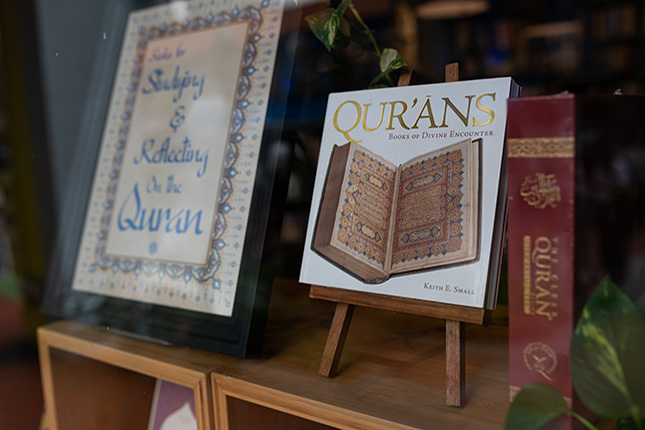 Books for
Studying
&
Reflecting
On the
Quran
QUR'ĀNS
BOOKS OF DIVINE ENCOUNTER
KEITH E. SMALL
QUR'AN